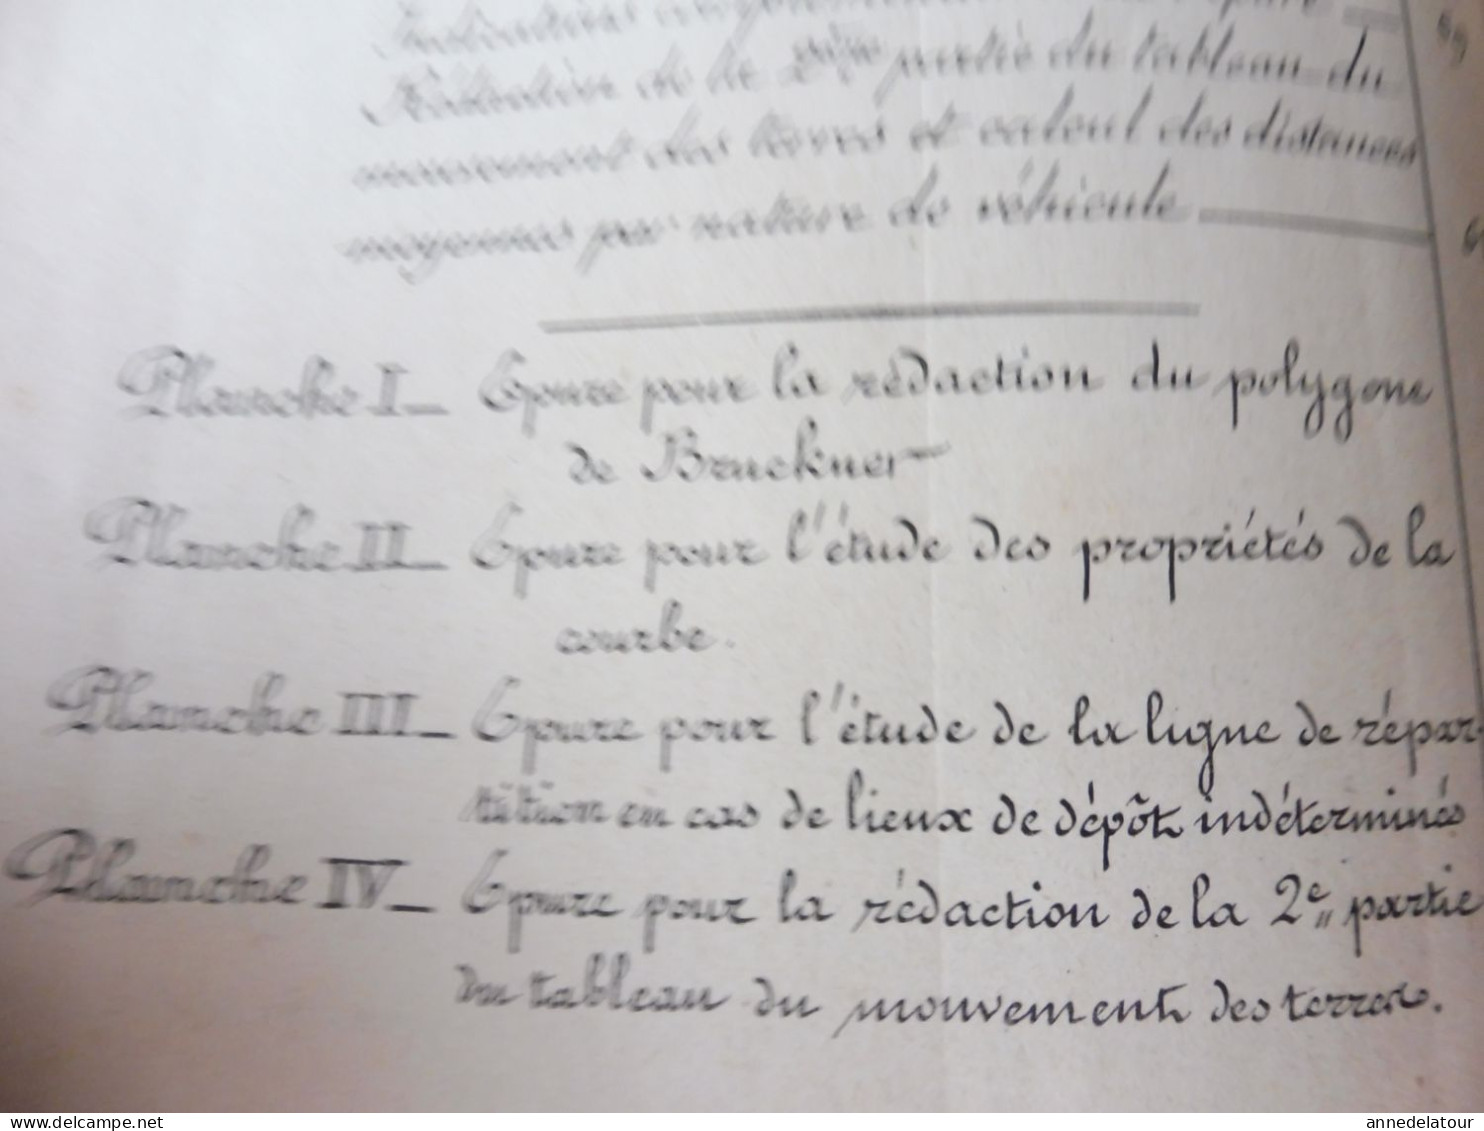 Rédaction de la 2ème partie du tableau du
mouvement des terres et calcul des distances
moyennes par nature de véhicule
Planche I_ Epure pour la rédaction du polygone
de Bruckner
Planche II_ Epure pour l'étude des propriétés de la
courbe.
Planche III_ Epure pour l'étude de la ligne de répar-
tition en cas de lieux de dépôt indéterminés
Planche IV_ Epure pour la rédaction de la 2e partie
du tableau du mouvement des terres.
delcampe.net
annedelatour